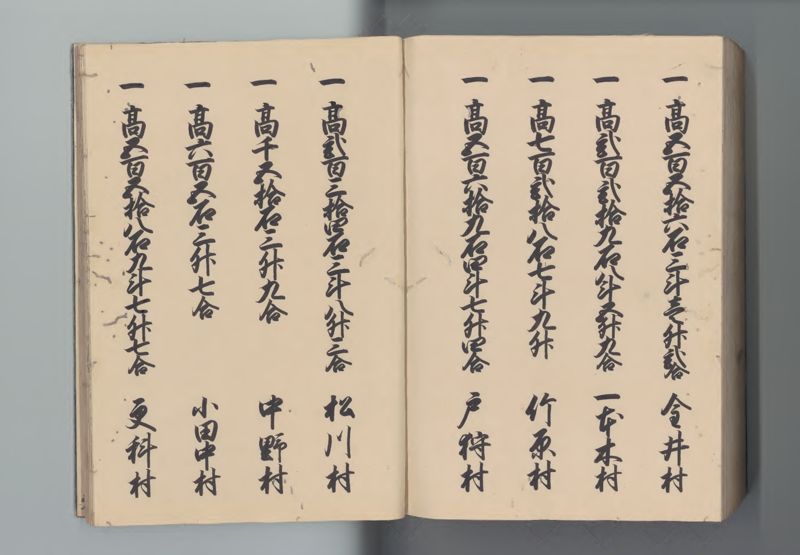 一 高五百五拾六石三斗壱升弐合 金井村
一 高弐百弐拾九石八斗五升九合 一本木村
一 高七百弐拾八石七斗九升 竹原村
一 高五百六拾九石四斗七升四合 戸狩村
一 高弐百三拾四石三斗八升三合 松川村
一 高千五拾石三升九合 中野村
一 高六百五石三升七合 小田中村
一 高五百五拾八石九斗七升七合 更科村